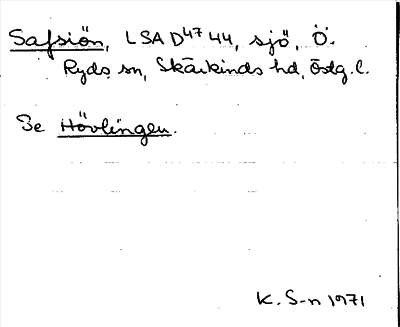 Safsiön, LSA D⁴⁷ 44, sjö, Ö.
Ryds sn, Skärkinds hd, Östg. l.
Se Hövlingen.
K. S-n 1971